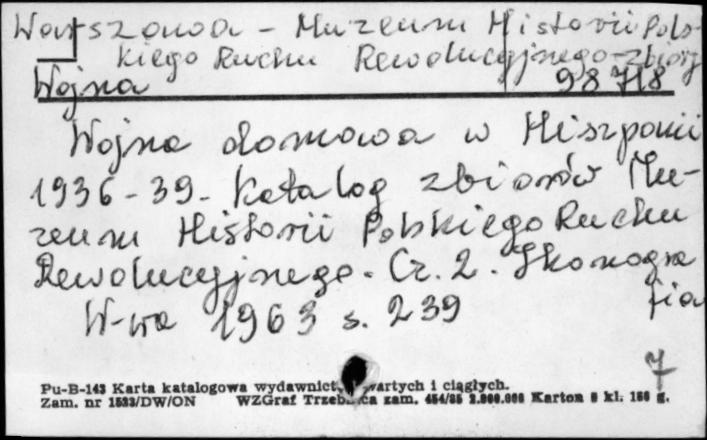 Warszawa - Muzeum Historii Pols-
kiego Ruchu Rewolucyjnego-zbiory
Wojna 98 718
Wojna domowa w Hiszpanii
1936-39. Katalog zbiorów Mu-
zeum Historii Polskiego Ruchu
Rewolucyjnego. Cz. 2. Ikonogra
fia
W-wa 1963 s. 239
7
Pu-B-143 Karta katalogowa wydawnict wartych i ciągłych.
Zam. nr 1533/DW/ON WZGraf Trzeb ca zam. 454/85 2.000.000 Karton kl. 180 g.